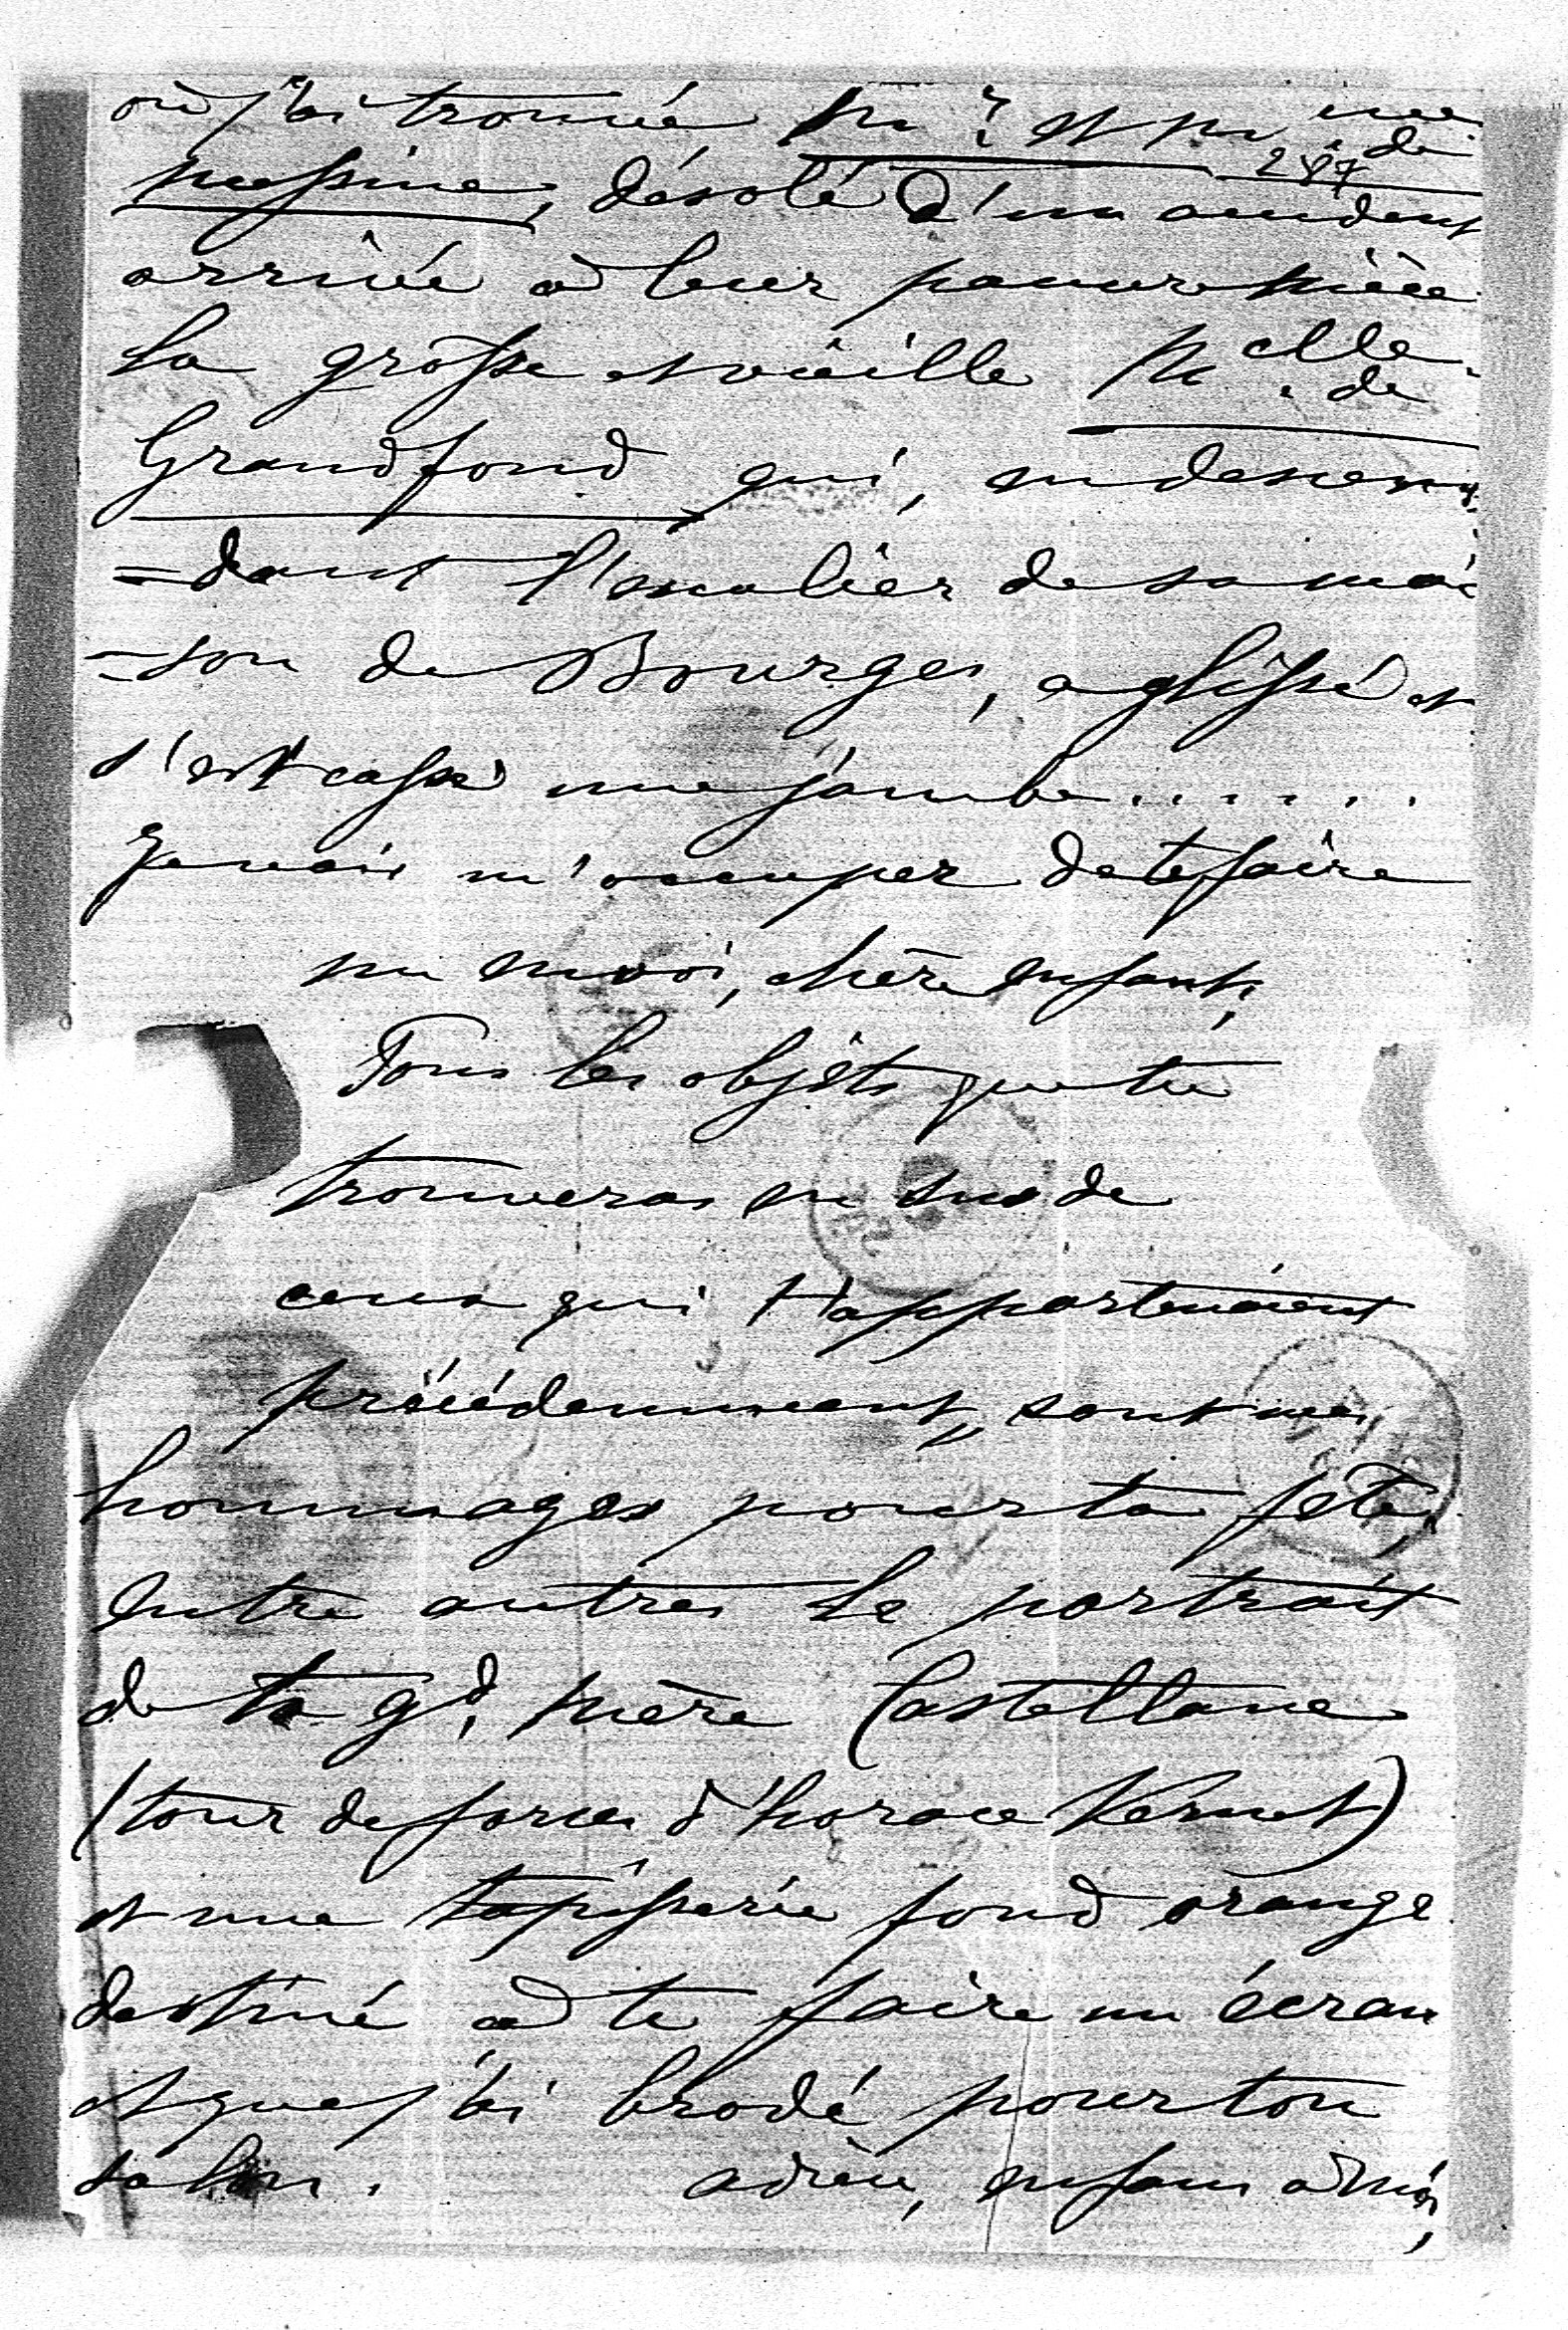 où j'ai trouvé Mr. et Mme de
287
Messine, désolé d'un accident
arrivé à leur pauvre nièce
la grosse et vieille Melle de
Grandfond qui, en descen
=dant l'escalier de sa mai
=son de Bourges, a glissé et
s'est cassé une jambe......
Je vais m'occuper de te faire
un envoi, chère enfant,
Tous les objets que tu
trouveras en sus de
ceux qui t'appartenaient
précédemment, sont mes
hommages pour ta fête,
entre autres le portrait
de ta gd. mère Castellane
(tour de force d'horace Vernet)
et une tapisserie fond orange
destiné à te faire un écran
et que j'ai brodé pour ton
salon. adieu, enfans à moi,